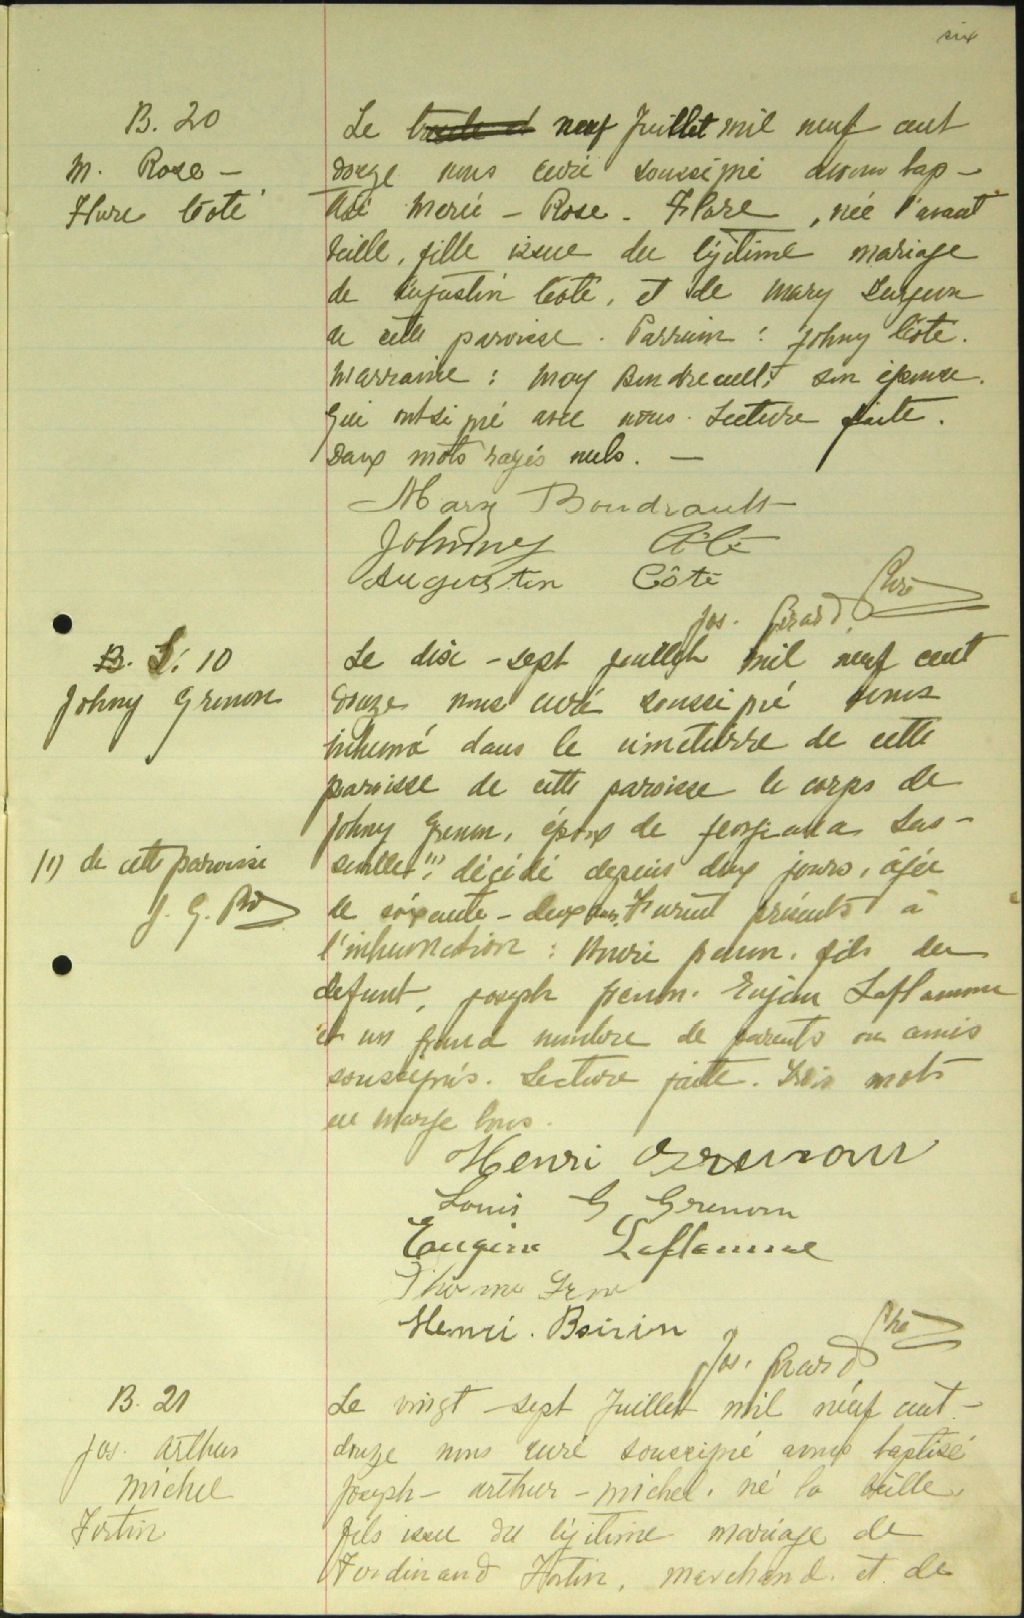 six
B. 20
M. Rose -
Flore Coté
Le neuf Juillet mil neuf cent
douze nous curé soussigné avons bap-
tisé Marie - Rose - Flore, née l'avant
veille, fille issue du légitime mariage
de Augustin Coté, et de Mary
de cette paroisse. Parrain : Johny Cote.
Marraine : Mary Boudreault son épouse.
Qui ont signé avec nous. Lecture faite.
Deux mots rayés nuls. -
Mary Boudrault
Johnney Côté
Augustin Côté
Jos. Girard Ptre
B. S. 10
Johny Grenon
Le dix-sept juillet mil neuf cent
douze nous curé soussigné avons
inhumé dans le cimetierre de cette
paroisse de cette paroisse le corps de
Johny Grenon, époux de Georgiana Las-
(1) de cette paroisse
J. G. Ptre
(1) décédé depuis deux jours, âgée
de soixante-deux ans. Furent présents à
l'inhumation : Henri Grenon, fils du
defunt, Joseph Grenon. Eugène Laflamme
et un grand nombre de parents ou amis
soussignés. Lecture faite. Trois mots
en marge bons.
Henri Grenon
Louis G Grenon
Eugène Laflamme
Henri. Boivin
Jos. Girard Ptre
B. 21
Jos. Arthur
Michel
Fortin
Le vingt-sept Juillet mil neuf cent-
douze nous curé soussigné avons baptisé
Joseph - Arthur - Michel, né la veille,
fils issu du légitime mariage de
Ferdinand Fortin, marchand, et de